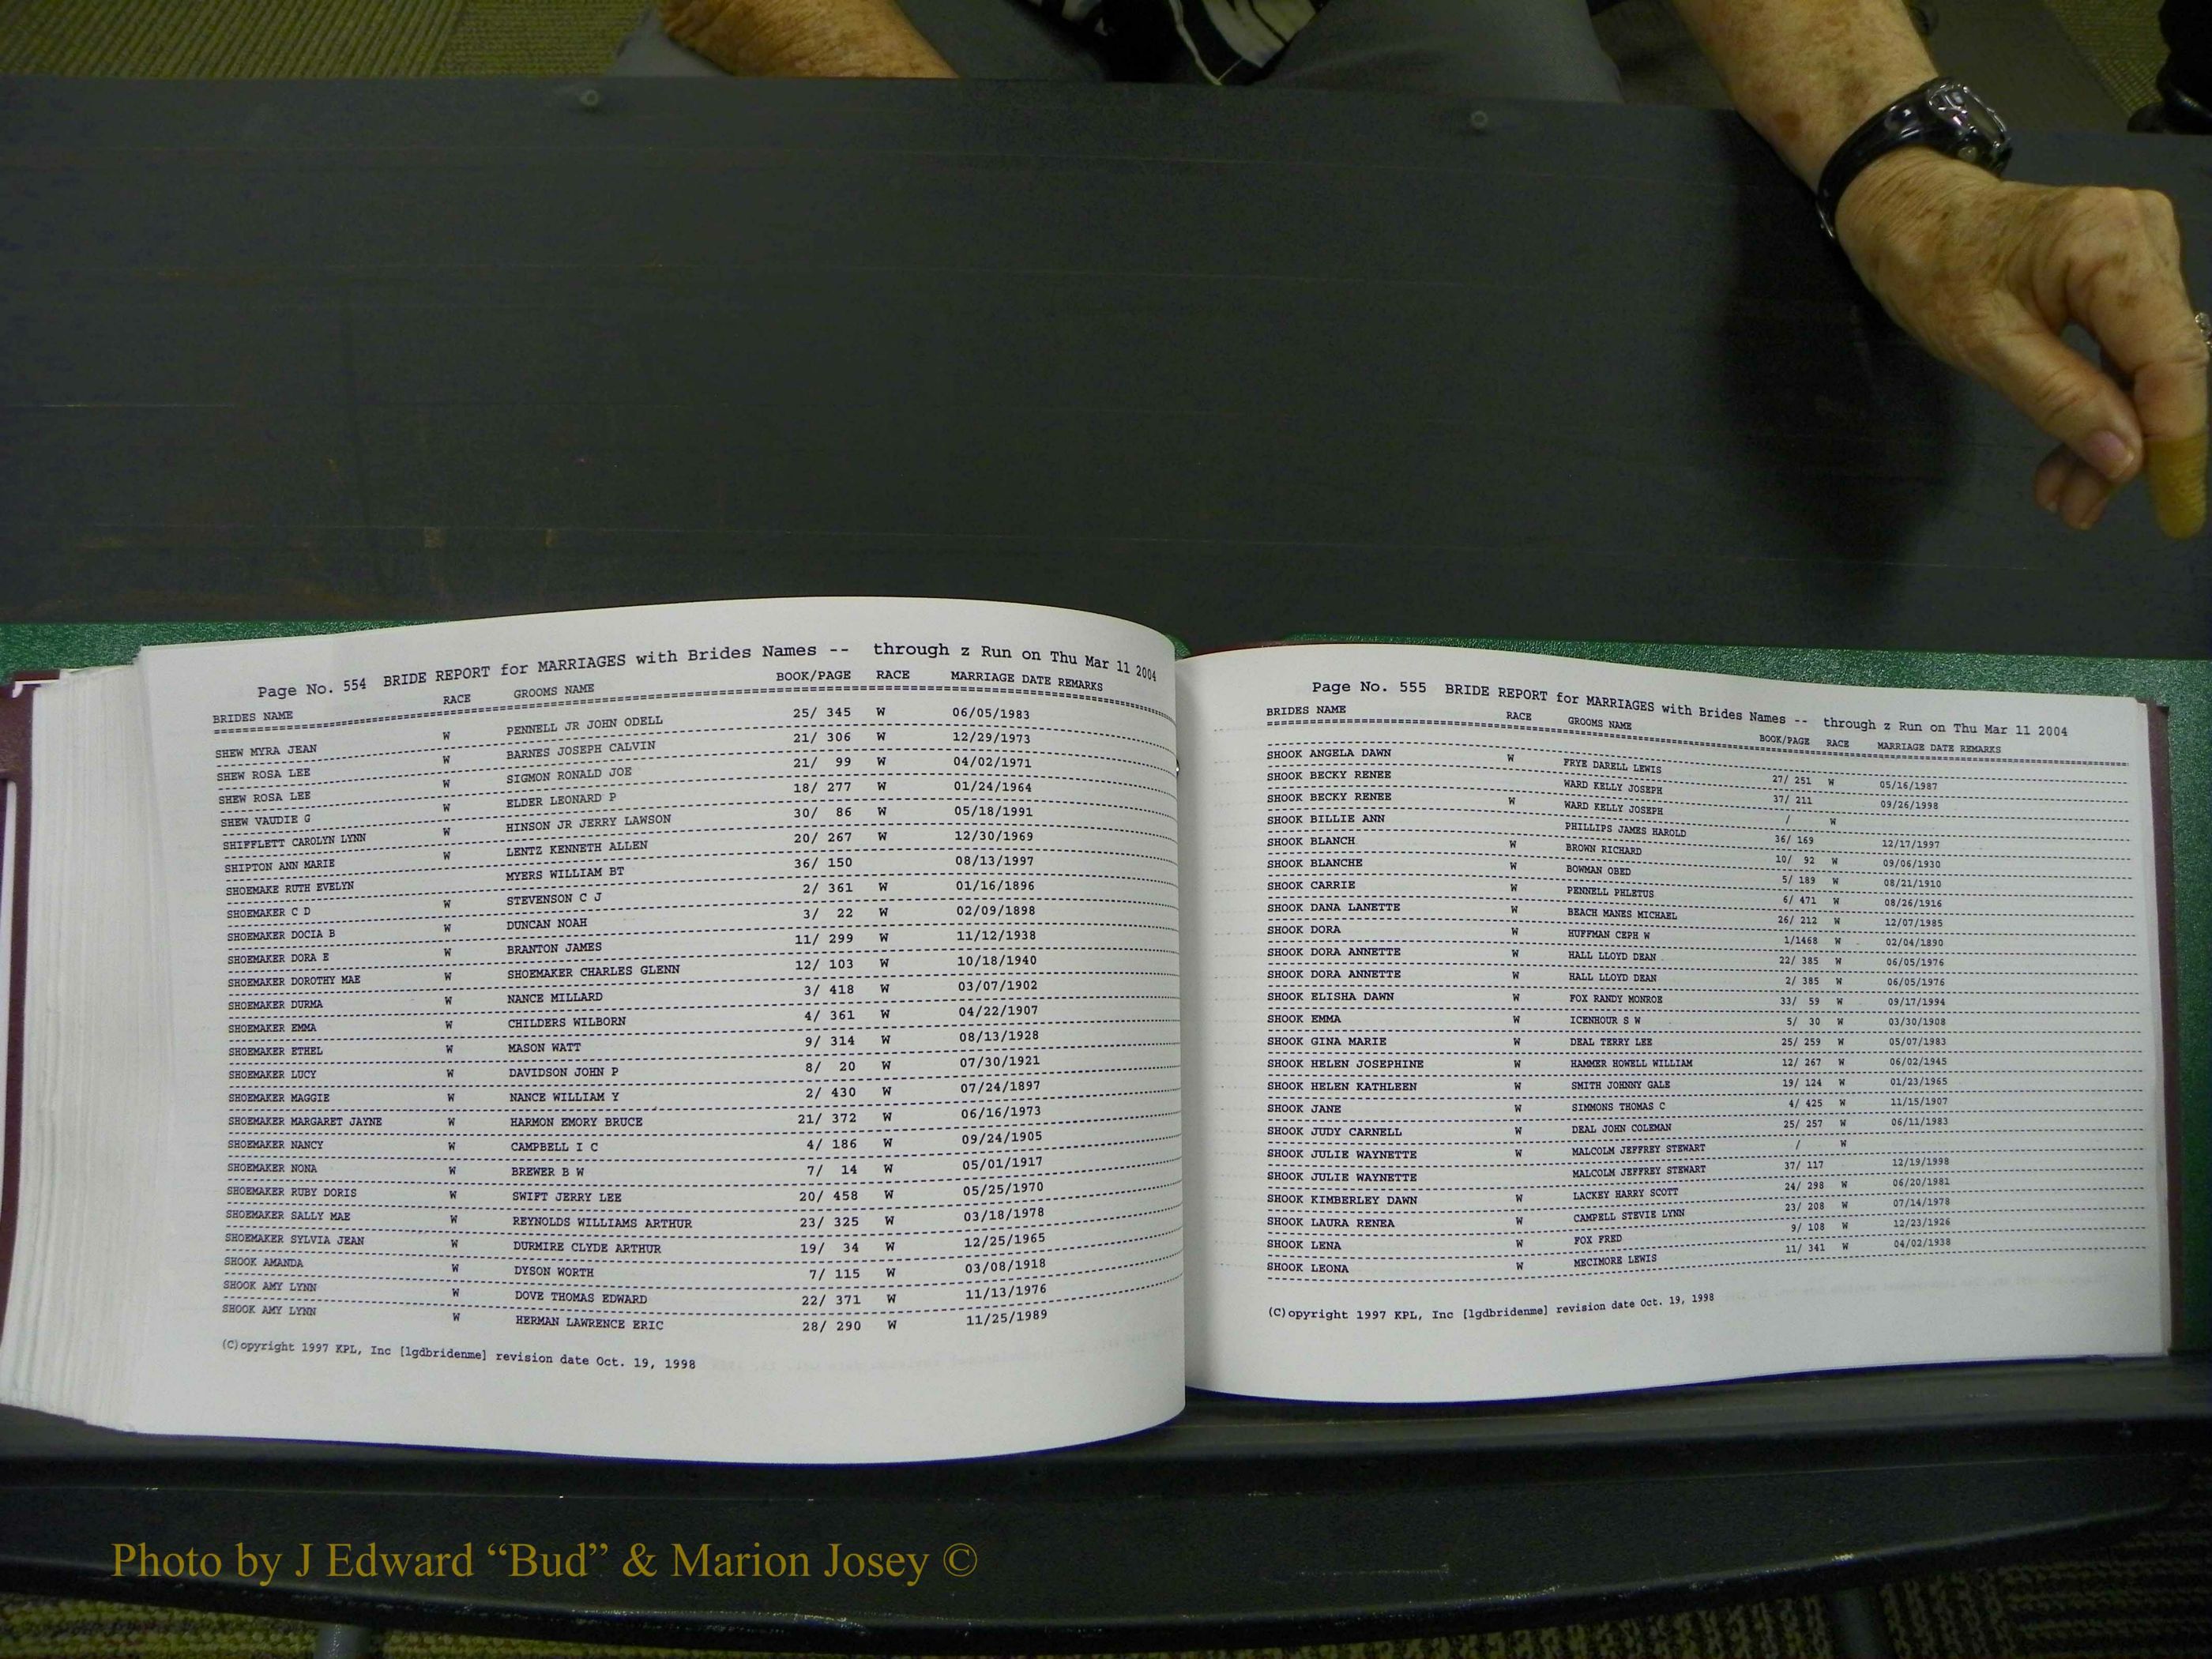 Page No. 554 BRIDE REPORT for MARRIAGES with Brides Names -- through z Run on Thu Mar 11 2004
BRIDES NAME RACE GROOMS NAME BOOK/PAGE RACE MARRIAGE DATE REMARKS
SHEW MYRA JEAN W PENNELL JR JOHN ODELL 25/ 345 W 06/05/1983
SHEW ROSA LEE W BARNES JOSEPH CALVIN 21/ 306 W 12/29/1973
SHEW ROSA LEE W SIGMON RONALD JOE 21/ 99 W 04/02/1971
SHEW VAUDIE G W ELDER LEONARD P 18/ 277 W 01/24/1964
SHIFFLETT CAROLYN LYNN W HINSON JR JERRY LAWSON 30/ 86 W 05/18/1991
SHIPTON ANN MARIE W LENTZ KENNETH ALLEN 20/ 267 W 12/30/1969
SHOEMAKE RUTH EVELYN MYERS WILLIAM BT 36/ 150 08/13/1997
SHOEMAKER C D W STEVENSON C J 2/ 361 W 01/16/1896
SHOEMAKER DOCIA B W DUNCAN NOAH 3/ 22 W 02/09/1898
SHOEMAKER DORA E W BRANTON JAMES 11/ 299 W 11/12/1938
SHOEMAKER DOROTHY MAE W SHOEMAKER CHARLES GLENN 12/ 103 W 10/18/1940
SHOEMAKER DURMA W NANCE MILLARD 3/ 418 W 03/07/1902
SHOEMAKER EMMA W CHILDERS WILBORN 4/ 361 W 04/22/1907
SHOEMAKER ETHEL W MASON WATT 9/ 314 W 08/13/1928
SHOEMAKER LUCY W DAVIDSON JOHN P 8/ 20 W 07/30/1921
SHOEMAKER MAGGIE W NANCE WILLIAM Y 2/ 430 W 07/24/1897
SHOEMAKER MARGARET JAYNE W HARMON EMORY BRUCE 21/ 372 W 06/16/1973
SHOEMAKER NANCY W CAMPBELL I C 4/ 186 W 09/24/1905
SHOEMAKER NONA W BREWER B W 7/ 14 W 05/01/1917
SHOEMAKER RUBY DORIS W SWIFT JERRY LEE 20/ 458 W 05/25/1970
SHOEMAKER SALLY MAE W REYNOLDS WILLIAMS ARTHUR 23/ 325 W 03/18/1978
SHOEMAKER SYLVIA JEAN W DURMIRE CLYDE ARTHUR 19/ 34 W 12/25/1965
SHOOK AMANDA W DYSON WORTH 7/ 115 W 03/08/1918
SHOOK AMY LYNN W DOVE THOMAS EDWARD 22/ 371 W 11/13/1976
SHOOK AMY LYNN W HERMAN LAWRENCE ERIC 28/ 290 W 11/25/1989
(C)opyright 1997 KPL, Inc [lgdbridenme] revision date Oct. 19, 1998
Page No. 555 BRIDE REPORT for MARRIAGES with Brides Names -- through z Run on Thu Mar 11 2004
BRIDES NAME RACE GROOMS NAME BOOK/PAGE RACE MARRIAGE DATE REMARKS
SHOOK ANGELA DAWN W FRYE DARELL LEWIS 27/ 251 W 05/16/1987
SHOOK BECKY RENEE WARD KELLY JOSEPH 37/ 211 09/26/1998
SHOOK BECKY RENEE W WARD KELLY JOSEPH / W
SHOOK BILLIE ANN PHILLIPS JAMES HAROLD 36/ 169 12/17/1997
SHOOK BLANCH W BROWN RICHARD 10/ 92 W 09/06/1930
SHOOK BLANCHE W BOWMAN OBED 5/ 189 W 08/21/1910
SHOOK CARRIE W PENNELL PHLETUS 6/ 471 W 08/26/1916
SHOOK DANA LANETTE W BEACH MANES MICHAEL 26/ 212 W 12/07/1985
SHOOK DORA W HUFFMAN CEPH W 1/1468 W 02/04/1890
SHOOK DORA ANNETTE W HALL LLOYD DEAN 22/ 385 W 06/05/1976
SHOOK DORA ANNETTE W HALL LLOYD DEAN 2/ 385 W 06/05/1976
SHOOK ELISHA DAWN W FOX RANDY MONROE 33/ 59 W 09/17/1994
SHOOK EMMA W ICENHOUR S W 5/ 30 W 03/30/1908
SHOOK GINA MARIE W DEAL TERRY LEE 25/ 259 W 05/07/1983
SHOOK HELEN JOSEPHINE W HAMMER HOWELL WILLIAM 12/ 267 W 06/02/1945
SHOOK HELEN KATHLEEN W SMITH JOHNNY GALE 19/ 124 W 01/23/1965
SHOOK JANE W SIMMONS THOMAS C 4/ 425 W 11/15/1907
SHOOK JUDY CARNELL W DEAL JOHN COLEMAN 25/ 257 W 06/11/1983
SHOOK JULIE WAYNETTE W MALCOLM JEFFREY STEWART / W
SHOOK JULIE WAYNETTE MALCOLM JEFFREY STEWART 37/ 117 12/19/1998
SHOOK KIMBERLEY DAWN W LACKEY HARRY SCOTT 24/ 298 W 06/20/1981
SHOOK LAURA RENEA W CAMPELL STEVIE LYNN 23/ 208 W 07/14/1978
SHOOK LENA W FOX FRED 9/ 108 W 12/23/1926
SHOOK LEONA W MECIMORE LEWIS 11/ 341 W 04/02/1938
(C)opyright 1997 KPL, Inc [lgdbridenme] revision date Oct. 19, 1998
Photo by J Edward “Bud” & Marion Josey ©